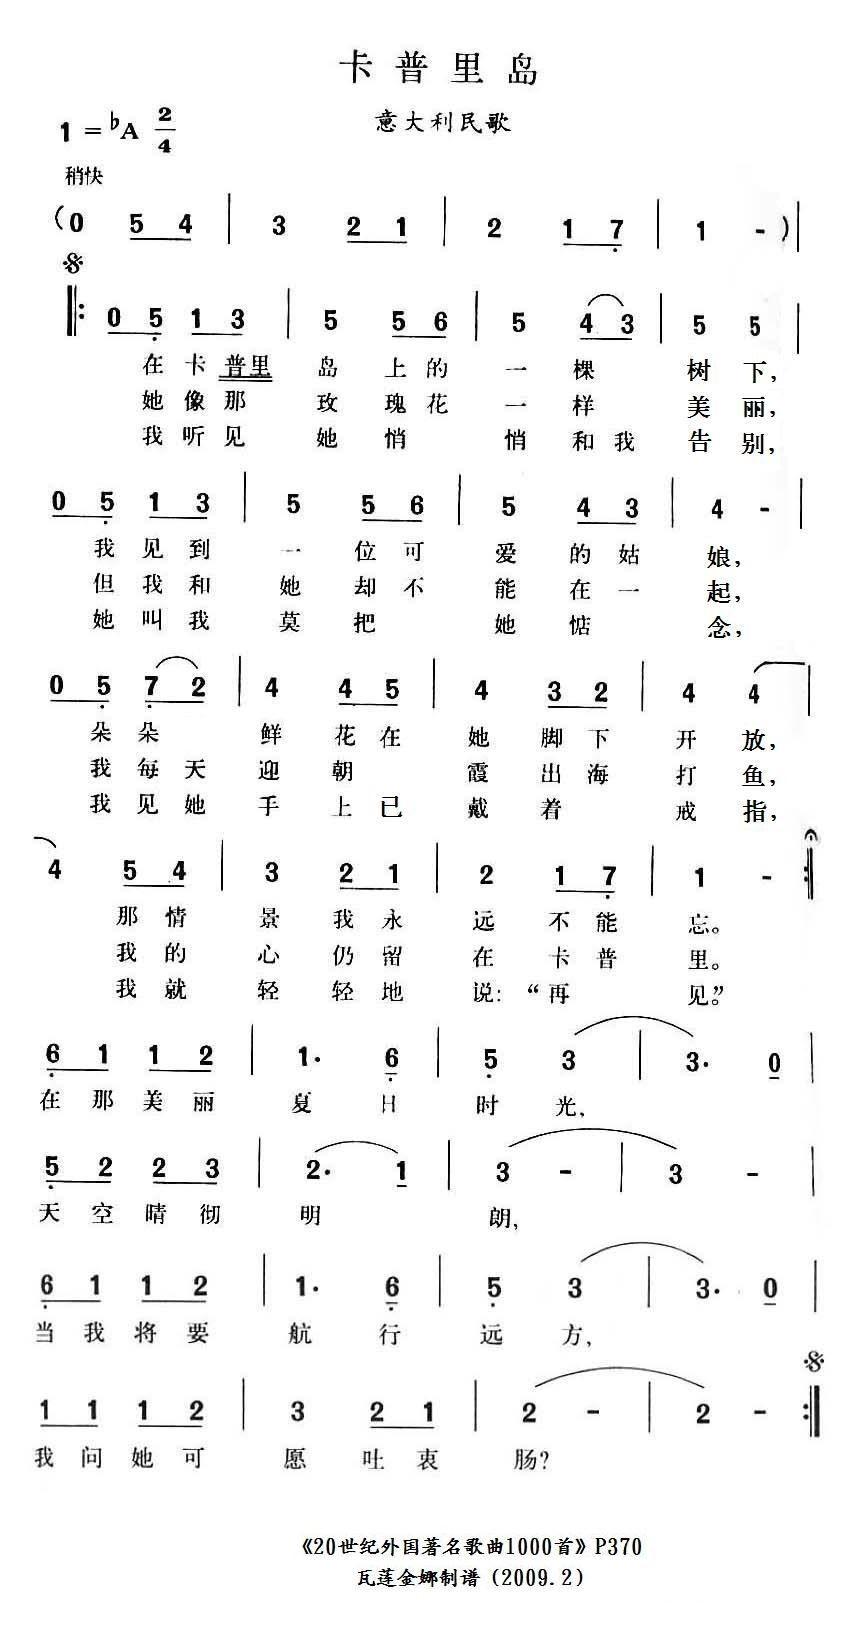 卡普里岛
1=♭A 2/4
意大利民歌
稍快
(0 5 4 | 3 2 1 | 2 1 7 | 1 - )|
‖: 0 5 1 3 | 5 5 6 | 5 4 3 | 5 5 |
在卡普里岛上的一棵树下，
她像那玫瑰花一样美丽，
我听见她悄悄和我告别，
0 5 1 3 | 5 5 6 | 5 4 3 | 4 - |
我见到一位可爱的姑娘，
但我和她却不能在一起，
她叫我莫把她惦念，
0 5 7 2 | 4 4 5 | 4 3 2 | 4 4 |
朵朵鲜花在她脚下开放，
我每天迎朝霞出海打鱼，
我见她手上已戴着戒指，
4 5 4 | 3 2 1 | 2 1 7 | 1 - :‖
那情景我永远不能忘。
我的心仍留在卡普里。
我就轻轻地说：“再见。”
6 1 1 2 | 1· 6 | 5 3 | 3· 0 |
在那美丽夏日时光，
5 2 2 3 | 2· 1 | 3 - | 3 - |
天空晴彻明朗，
6 1 1 2 | 1· 6 | 5 3 | 3· 0 |
当我将要航行远方，
1 1 1 2 | 3 2 1 | 2 - | 2 - :‖
我问她可愿吐衷肠？
《20世纪外国著名歌曲1000首》P370
瓦莲金娜制谱（2009.2）